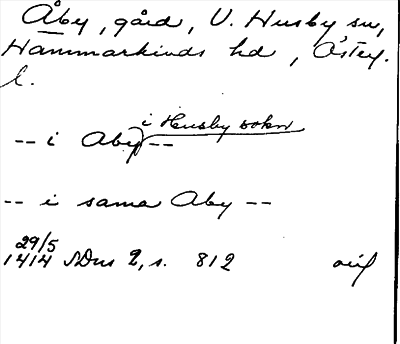 Åby, gård, V. Husby sn,
Hammarkinds hd, Östeg.
l.
i Husby sokn
-- i Aby --
-- i sama Aby --
29/5
1414 SDns 2, s. 812